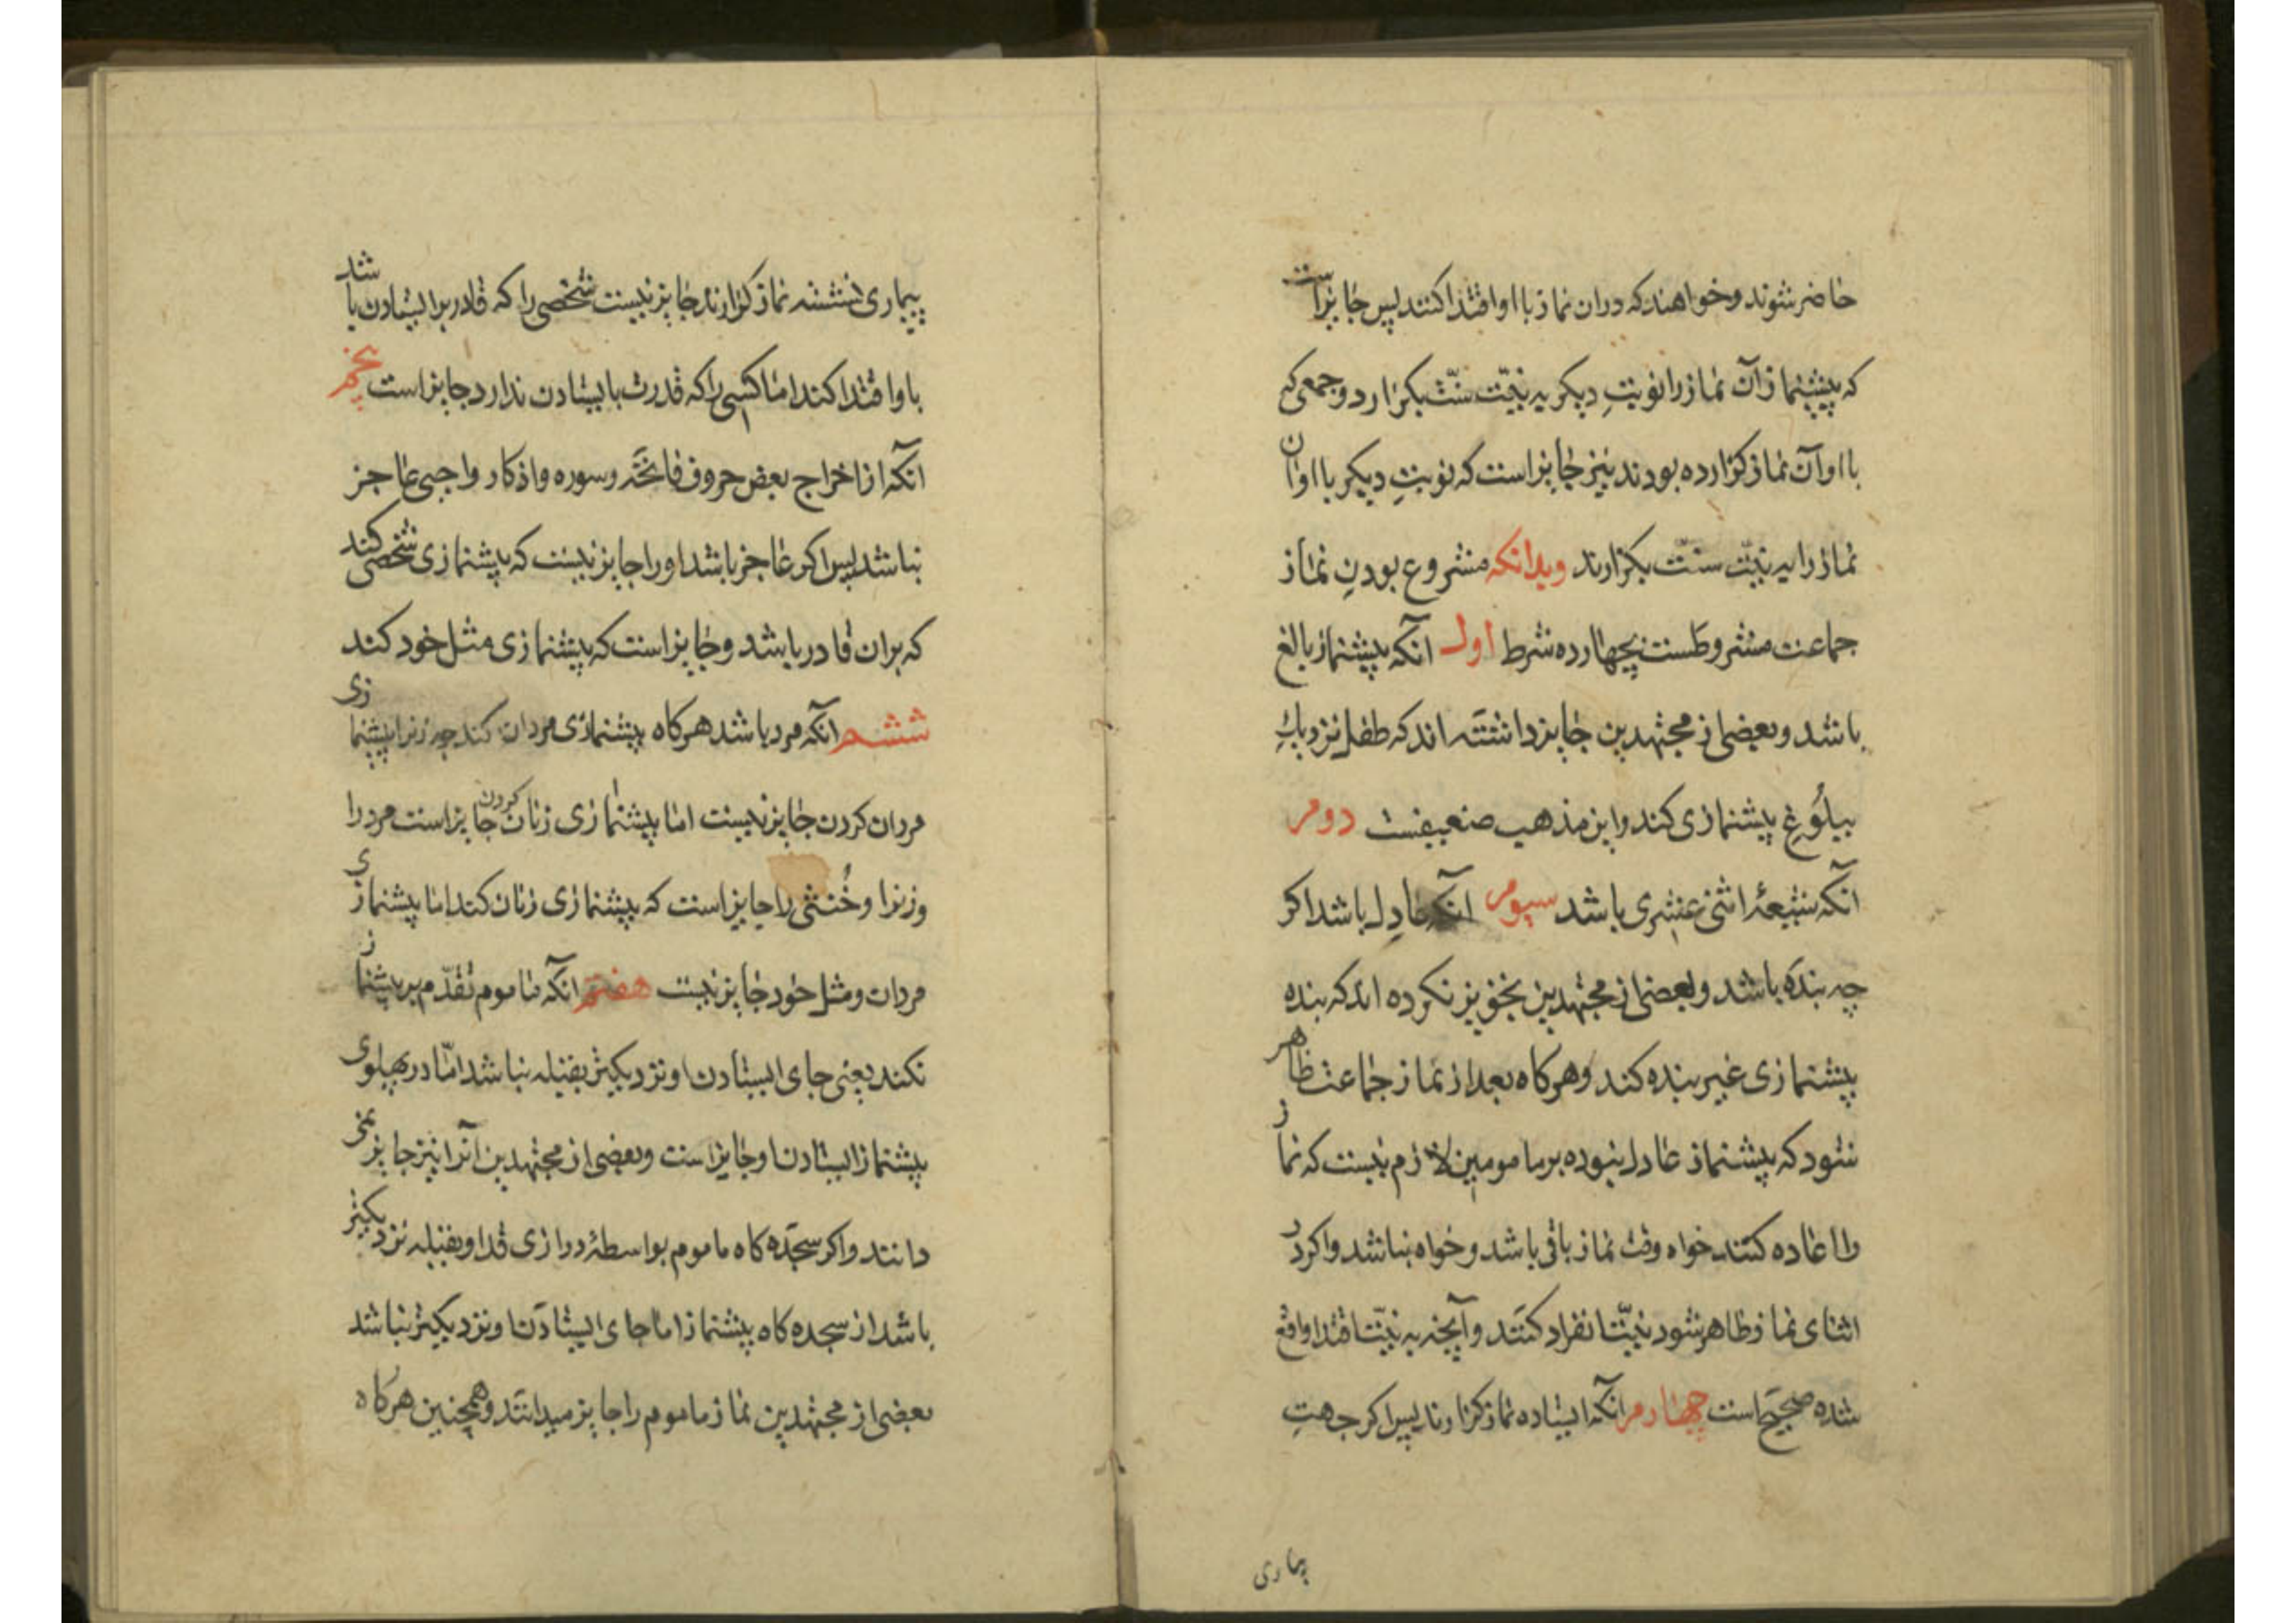 حاضر شوند وخواهند که دران نماز بااو اقتدا کنند پس جایزاست
که پیشنماز آن نماز را نوبتِ دیکر به نیّت سنّت بکزارد و جمعی که
بااو آن نماز کزارده بودند نیز جایز است که نوبتِ دیکر بااو ان
نماز را به نیّت سنّت بکزارند وبدانکه مشروع بودنِ نماز
جماعت مشروطست بچهارده شرط اول آنکه پیشنماز بالغ
باشد وبعضی از مجتهدین جایز داشته اند که طفل نزدیك
ببلُوغ پیشنمازی کند واین مذهب ضعیفست دوم
آنکه شیعۀ اثنی عشری باشد سیوم آنکه عادل باشد اکر
چه بنده باشد وبعضی از مجتهدین تجویز نکرده اند که بنده
پیشنمازی غیر بنده کند وهرکاه بعد از نماز جماعت ظاهر
شود که پیشنماز عادل نبوده بر مامومین لازم نیست که نماز
را اعاده کنند خواه وقت نماز باقی باشد وخواه نباشد واکر در
اثنای نماز ظاهر شود نیّت انفراد کنند وآنچه به نیّت اقتدا واقع
شده صحیح است چهارم آنکه ایستاده نماز کزارند پس اکر جهتِ
بیماری
پیماری نشسته نماز کزارند جایز نیست شخصی را که قادر برایستادن باشد
باو اقتدا کند اما کسی را که قدرت بایستادن ندارد جایز است پنجم
آنکه از اخراج بعض حروف فاتحه وسوره واذکار واجبی عاجز
نباشد پس اکر عاجز باشد اورا جایز نیست که پیشنمازی شخصی کند
که بران قادر باشد وجایز است که پیشنمازی مثل خود کند
ششم آنکه مرد باشد هرکاه پیشنمازی مردان کند چه زنرا پیشنمازی
مردان کردن جایز نیست اما پیشنمازی زنان کردن جایز است مرد را
وزنرا وخُنثی را جایز است که پیشنمازی زنان کند اما پیشنمازی
مردان ومثل خود جایز نیست هفتم آنکه ماموم تقدّم بر پیشنماز
نکند یعنی جای ایستادن او نزدیکتر بقبله نباشد امّا در پهلوی
پیشنماز ایستادن او جایز است وبعضی از مجتهدین آنرا نیز جایز نمی
دانند واکر سجدّه کاه ماموم بواسطۀ درازی قد او بقبله نزدیکتر
باشد از سجده کاه پیشنماز اما جای ایستادن او نزدیکتر نباشد
بعضی از مجتهدین نماز ماموم را جایز میدانند وهمچنین هرکاه